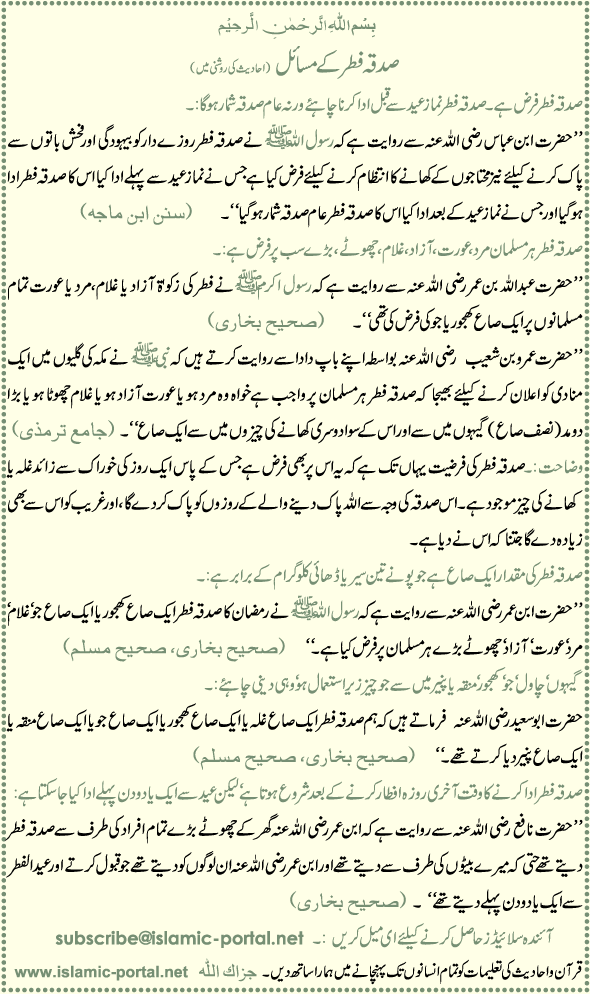 بِسْمِ اللهِ الرَّحْمٰنِ الرَّحِيْمِ
صدقہ فطر کے مسائل (احادیث کی روشنی میں)
صدقہ فطر فرض ہے۔ صدقہ فطر نماز عید سے قبل ادا کرنا چاہئے ورنہ عام صدقہ شمار ہوگا:۔
’’حضرت ابن عباس رضی اللہ عنہ سے روایت ہے کہ رسول اللہ ﷺ نے صدقہ فطر روزے دار کو بیہودگی اور فحش باتوں سے
پاک کرنے کیلئے نیز محتاجوں کے کھانے کا انتظام کرنے کیلئے فرض کیا ہے جس نے نماز عید سے پہلے ادا کیا اس کا صدقہ فطر ادا
ہوگیا اور جس نے نماز عید کے بعد ادا کیا اس کا صدقہ فطر عام صدقہ شمار ہوگیا‘‘۔ (سنن ابن ماجه)
صدقہ فطر ہر مسلمان مرد، عورت، آزاد، غلام، چھوٹے، بڑے سب پر فرض ہے:۔
’’حضرت عبداللہ بن عمر رضی اللہ عنہ سے روایت ہے کہ رسول اکرم ﷺ نے فطر کی زکوٰۃ آزاد یا غلام، مرد یا عورت تمام
مسلمانوں پر ایک صاع کھجور یا جو کی فرض کی تھی‘‘۔ (صحیح بخاری)
’’حضرت عمرو بن شعیب رضی اللہ عنہ بواسطہ اپنے باپ دادا سے روایت کرتے ہیں کہ نبی ﷺ نے مکہ کی گلیوں میں ایک
منادی کو اعلان کرنے کیلئے بھیجا کہ صدقہ فطر ہر مسلمان پر واجب ہے خواہ وہ مرد ہو یا عورت آزاد ہو یا غلام چھوٹا ہو یا بڑا
دو مد (نصف صاع) گیہوں میں سے اور اس کے سوا دوسری کھانے کی چیزوں میں سے ایک صاع‘‘۔ (جامع ترمذی)
وضاحت:۔ صدقہ فطر کی فرضیت یہاں تک ہے کہ یہ اس پر بھی فرض ہے جس کے پاس ایک روز کی خوراک سے زائد غلہ یا
کھانے کی چیز موجود ہے۔ اس صدقہ کی وجہ سے اللہ پاک دینے والے کے روزوں کو پاک کر دے گا، اور غریب کو اس سے بھی
زیادہ دے گا جتنا کہ اس نے دیا ہے۔
صدقہ فطر کی مقدار ایک صاع ہے جو پونے تین سیر یا ڈھائی کلوگرام کے برابر ہے:۔
’’حضرت ابن عمر رضی اللہ عنہ سے روایت ہے کہ رسول اللہ ﷺ نے رمضان کا صدقہ فطر ایک صاع کھجور یا ایک صاع جو‘ غلام‘
مرد‘ عورت‘ آزاد‘ چھوٹے بڑے ہر مسلمان پر فرض کیا ہے۔‘‘ (صحیح بخاری، صحیح مسلم)
گیہوں‘ چاول‘ جو‘ کھجور‘ منقہ یا پنیر میں سے جو چیز زیر استعمال ہو‘ وہی دینی چاہئے:۔
حضرت ابو سعید رضی اللہ عنہ فرماتے ہیں کہ ہم صدقہ فطر ایک صاع غلہ یا ایک صاع کھجور یا ایک صاع جو یا ایک صاع منقہ یا
ایک صاع پنیر دیا کرتے تھے۔‘‘ (صحیح بخاری، صحیح مسلم)
صدقہ فطر ادا کرنے کا وقت آخری روزہ افطار کرنے کے بعد شروع ہوتا ہے‘ لیکن عید سے ایک یا دو دن پہلے ادا کیا جاسکتا ہے:
’’حضرت نافع رضی اللہ عنہ سے روایت ہے کہ ابن عمر رضی اللہ عنہ گھر کے چھوٹے بڑے تمام افراد کی طرف سے صدقہ فطر
دیتے تھے حتی کہ میرے بیٹوں کی طرف سے دیتے تھے اور ابن عمر رضی اللہ عنہ ان لوگوں کو دیتے تھے جو قبول کرتے اور عید الفطر
سے ایک یا دو دن پہلے دیتے تھے‘‘۔ (صحیح بخاری)
آئندہ سلائیڈز حاصل کرنے کیلئے ای میل کریں :۔ subscribe@islamic-portal.net
قرآن و احادیث کی تعلیمات کو تمام انسانوں تک پہنچانے میں ہمارا ساتھ دیں۔ جزاك الله www.islamic-portal.net